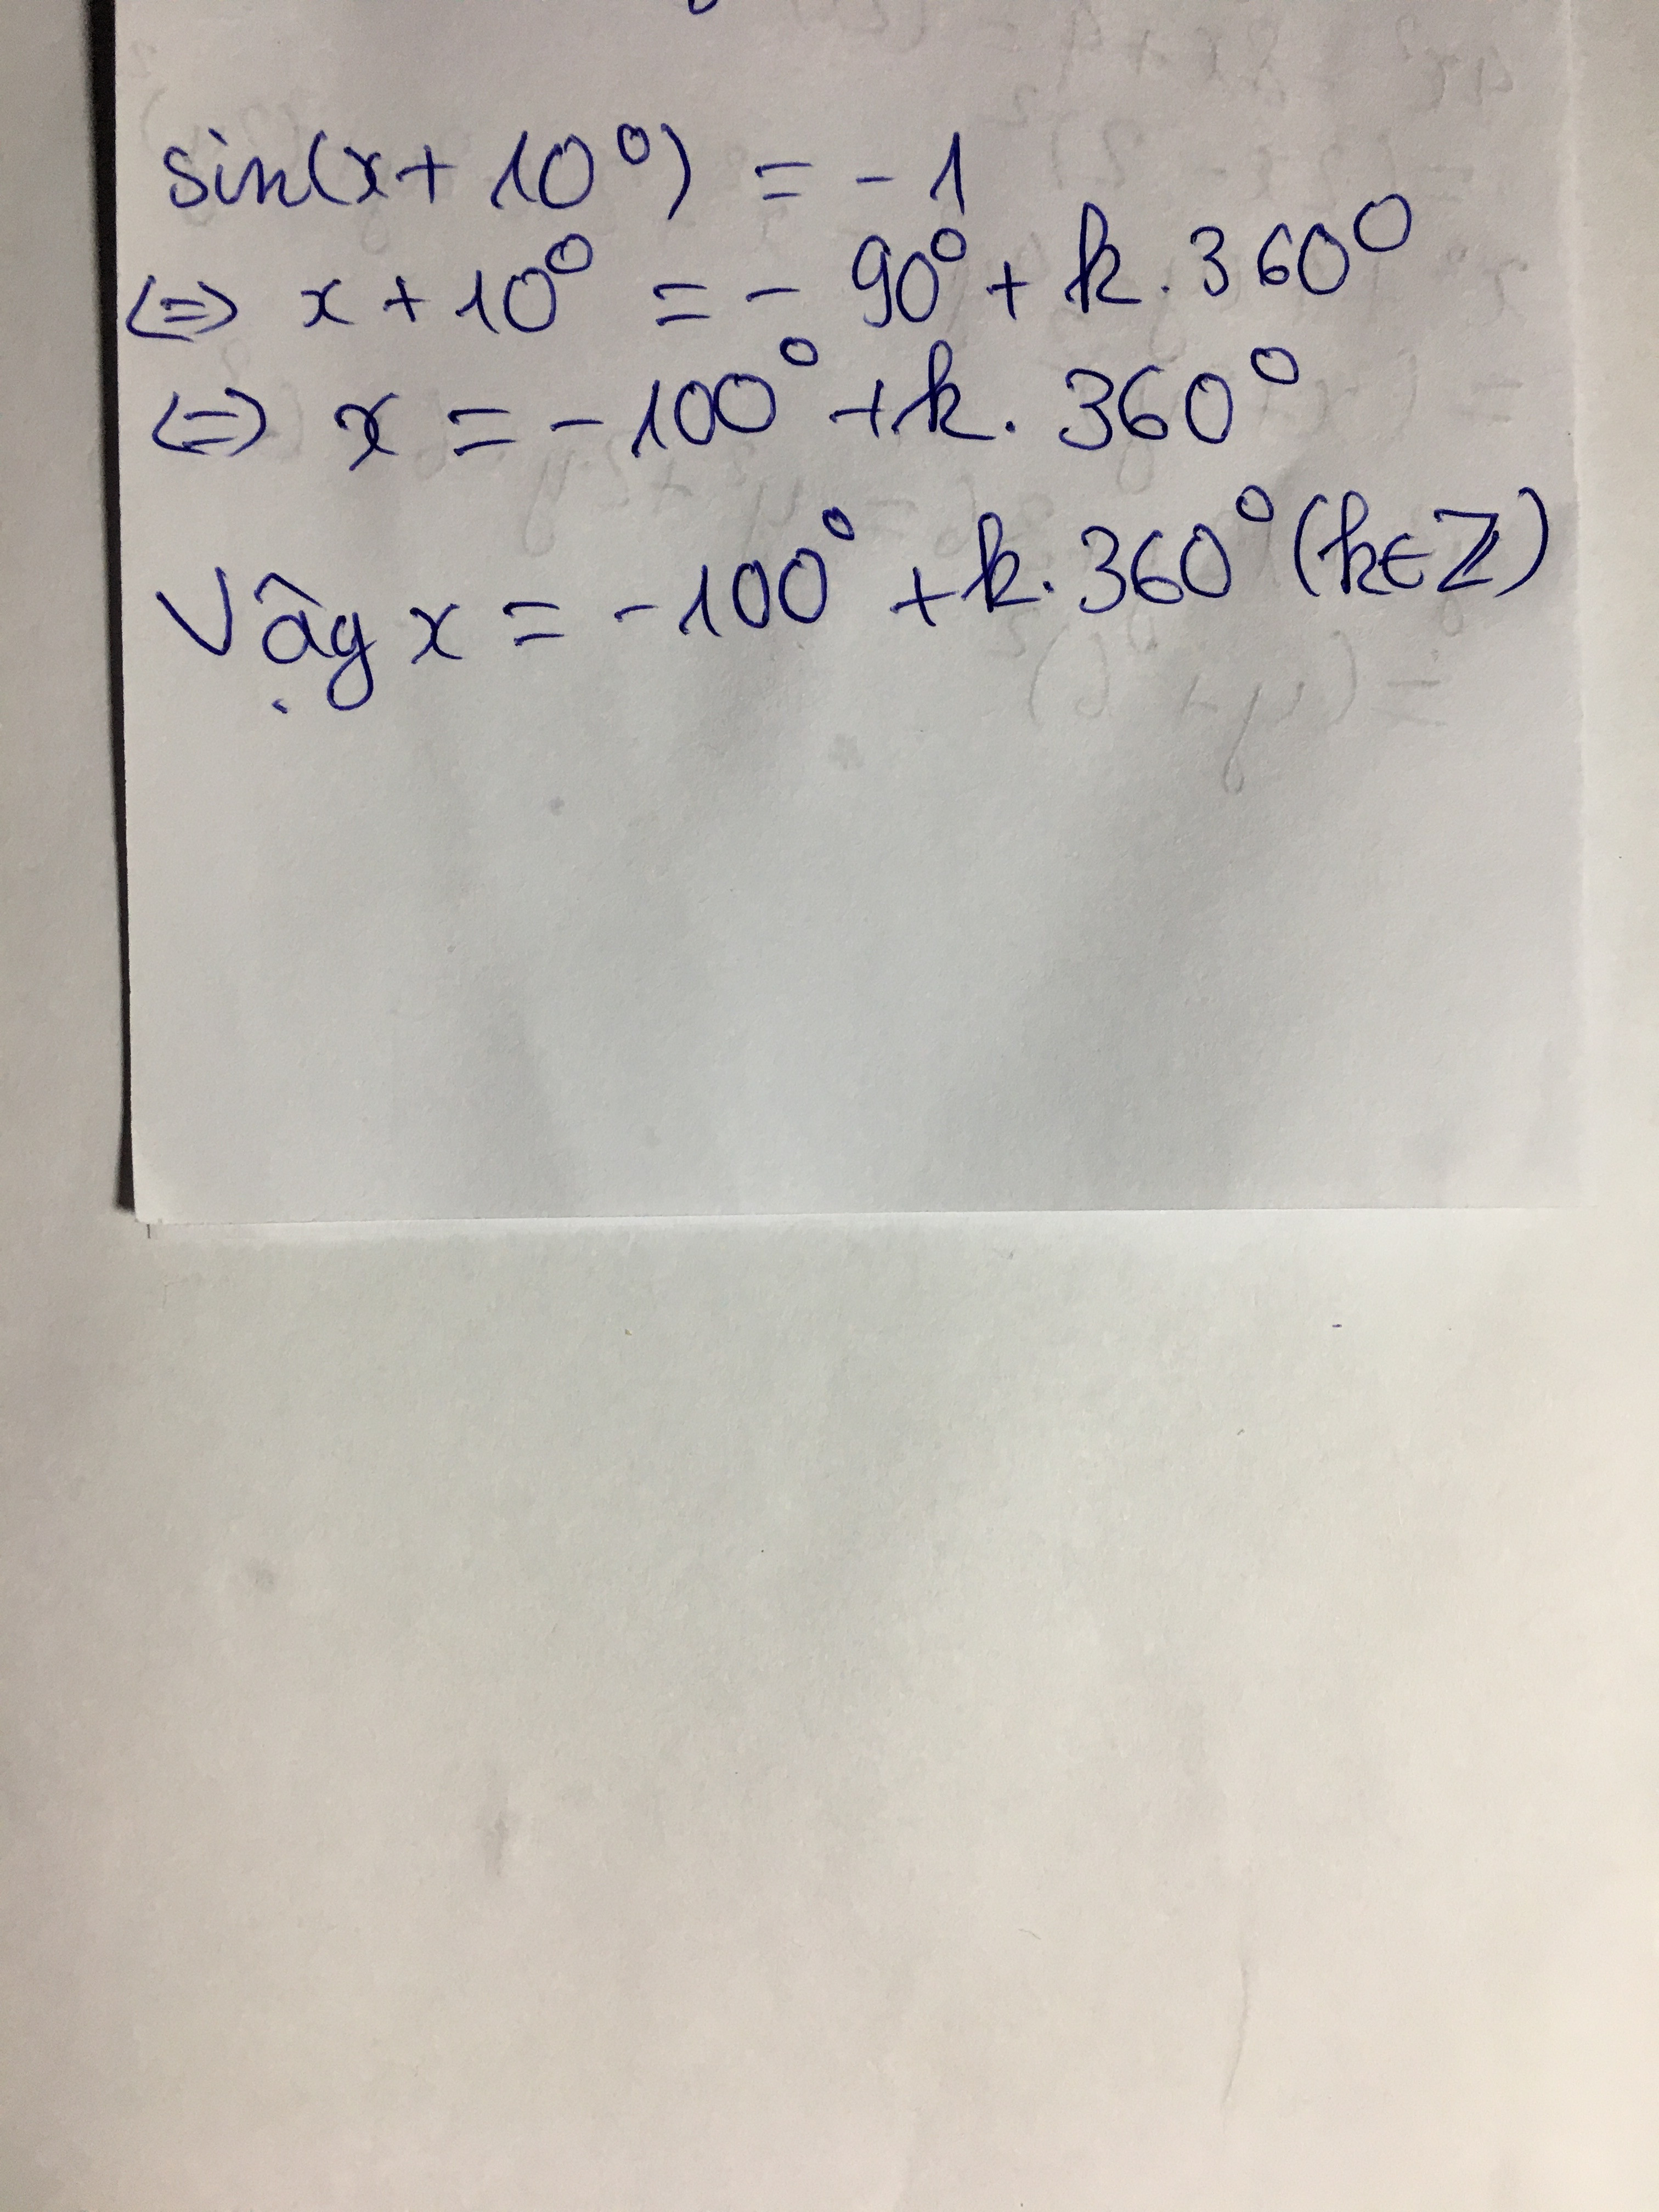 sin(x + 10°) = -1
<=> x + 10° = - 90° + k . 360°
<=> x = -100° + k . 360°
Vậy x = -100° + k . 360° (k∈Z)